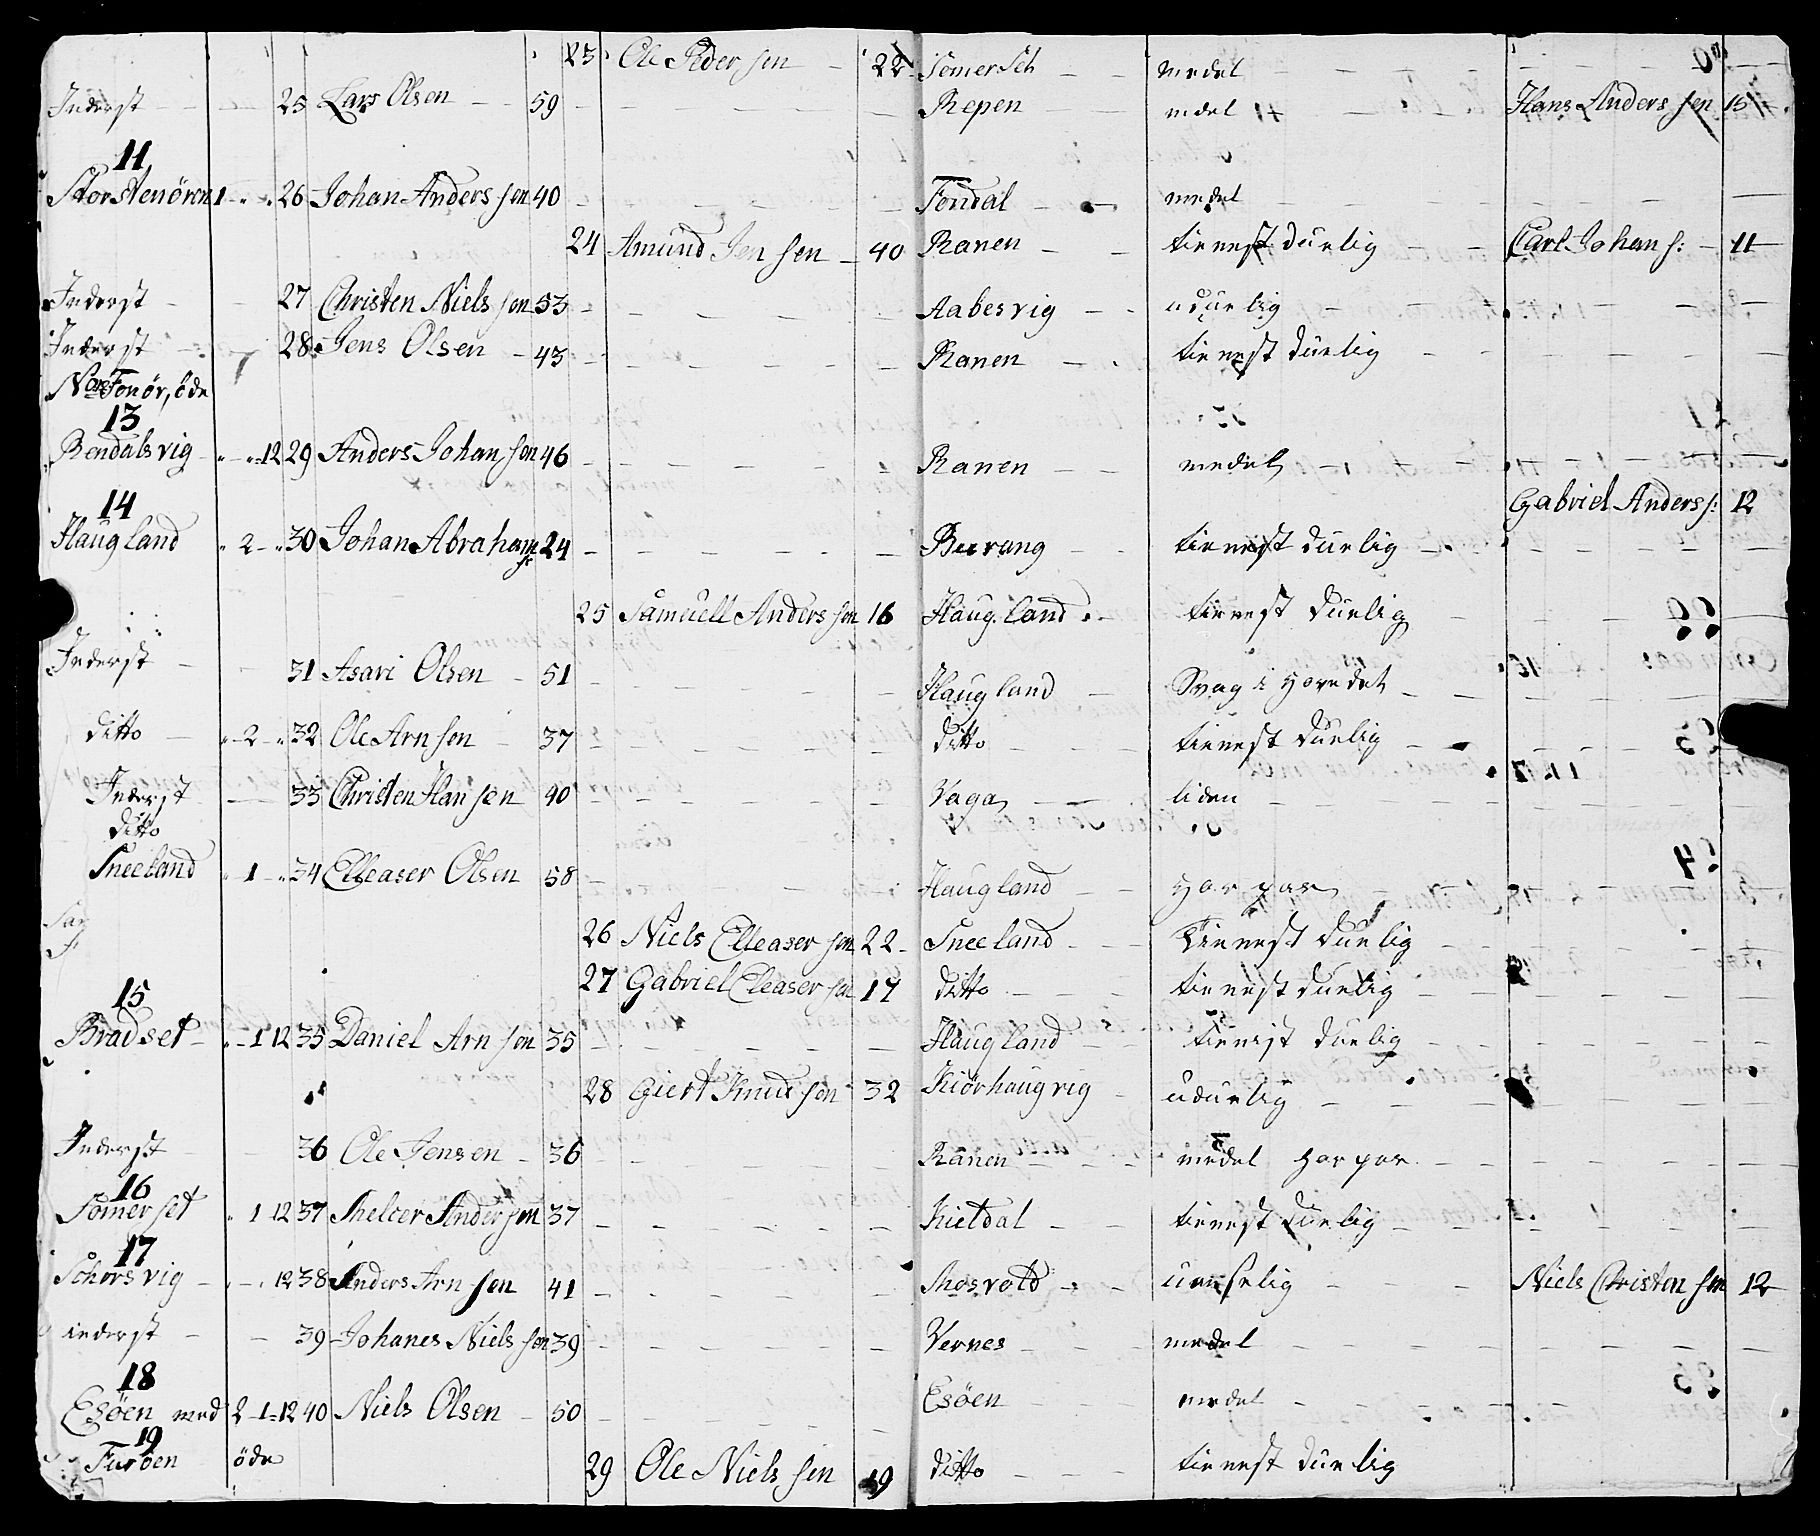 23 Ole Peder sen 22 Somerset medel
Inderst 25 Lars Olsen 59 Repen medel Hans Anders sen 15
11
Storstenören 1 26 Johan Anders sen 40 Fondal medel
24 Amund Jen sen 40 Ranen tienest durlig Carl Johan s: 11
Inderst 27 Christen Niels sen 53 Aabesvig udurlig
Inderst 28 Jens Olsen 43 Ranen tienest durlig
Nor Fonör, öde
13
Rendalsvig 12 29 Anders Johan sen 46 Ranen medel
14 Gabriel Anders s: 12
Haugland 2 30 Johan Abraham s: 24 Beerang tienest durlig
25 Samuell Anders sen 16 Haugland tienest durlig
Inderst 31 Asari Olsen 51 Haugland Svag i Hovedet
ditto 2 32 Ole Arn sen 37 ditto tienest durlig
Inderst 33 Christen Han sen 40 Vaga liden
ditto
Sneeland 1 34 Elleaser Olsen 58 Haugland Har pas
26 Niels Elleaser sen 22 Sneeland tienest durlig
27 Gabriel Eleaser sen 17 ditto tienest durlig
15
Bradset 1 12 35 Daniel Arn sen 35 Haugland tienist durlig
28 Giert Knud sen 32 Kiörhaugvig udurlig
Inderst 36 Ole Jensen 36 Ranen medel har pas
16
Somerset 1 12 37 Shelcer Ander sen 37 Kieldal tienest durlig
17
Sohorsvig 12 38 Anders Arn sen 41 Mosvold uanselig Niels Christen sen 12
inderst 39 Johanes Niels sen 39 Vernes medel
18
Esöen med 2 1 12 40 Niels Olsen 50 Esöen medel
19
Furöen öde 29 Ole Niels sen 19 ditto tienest durlig